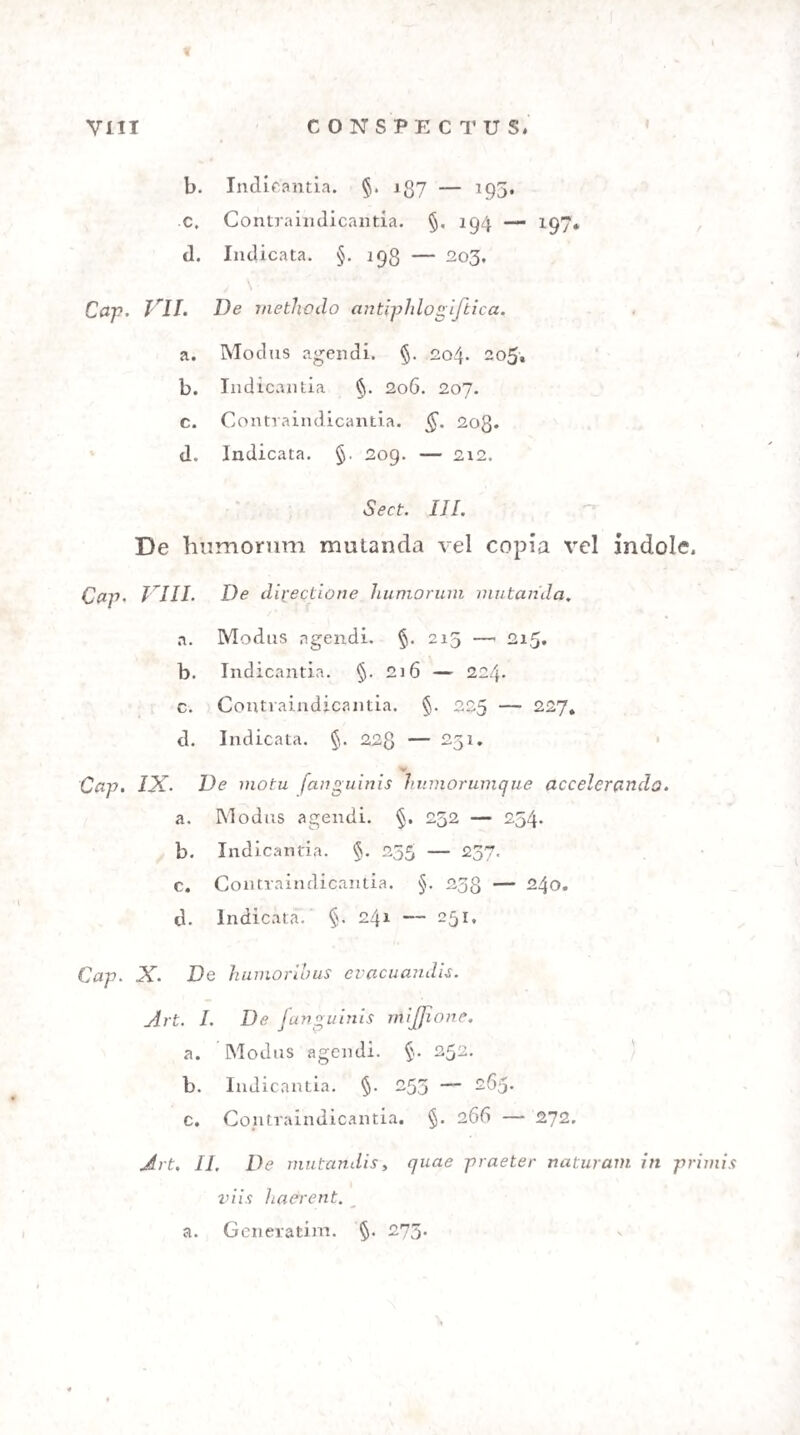 VIII CONSPECTUS.
b. Indicantia. §. 187 — 193.
c. Contraindicantia. §. 194 — 197.
d. Indicata. §. 198 — 203.
Cap. VII. De methodo antiphlogiſtica.
a. Modus agendi. §. 204. 205.
b. Indicantia §. 206. 207.
c. Contraindicantia. §. 208.
d. Indicata. §. 209. — 212.
Sect. III.
De humorum mutanda vel copia vel indole.
Cap. VIII. De directione humorum mutanda.
a. Modus agendi. §. 213 — 215.
b. Indicantia. §. 216 — 224.
c. Contraindicantia. §. 225 — 227.
d. Indicata. §. 228 — 231.
Cap. IX. De motu ſanguinis humorumque accelerando.
a. Modus agendi. §. 232 — 234.
b. Indicantia. §. 235 — 237.
c. Contraindicantia. §. 238 — 240.
d. Indicata. §. 241 — 251.
Cap. X. De humoribus evacuandis.
Art. I. De ſanguinis miſſione.
a. Modus agendi. §. 252.
b. Indicantia. §. 253 — 265.
c. Contraindicantia. §. 266 — 272.
Art. II. De mutandis, quae praeter naturam in primis
viis haerent.
a. Generatim. §. 273.